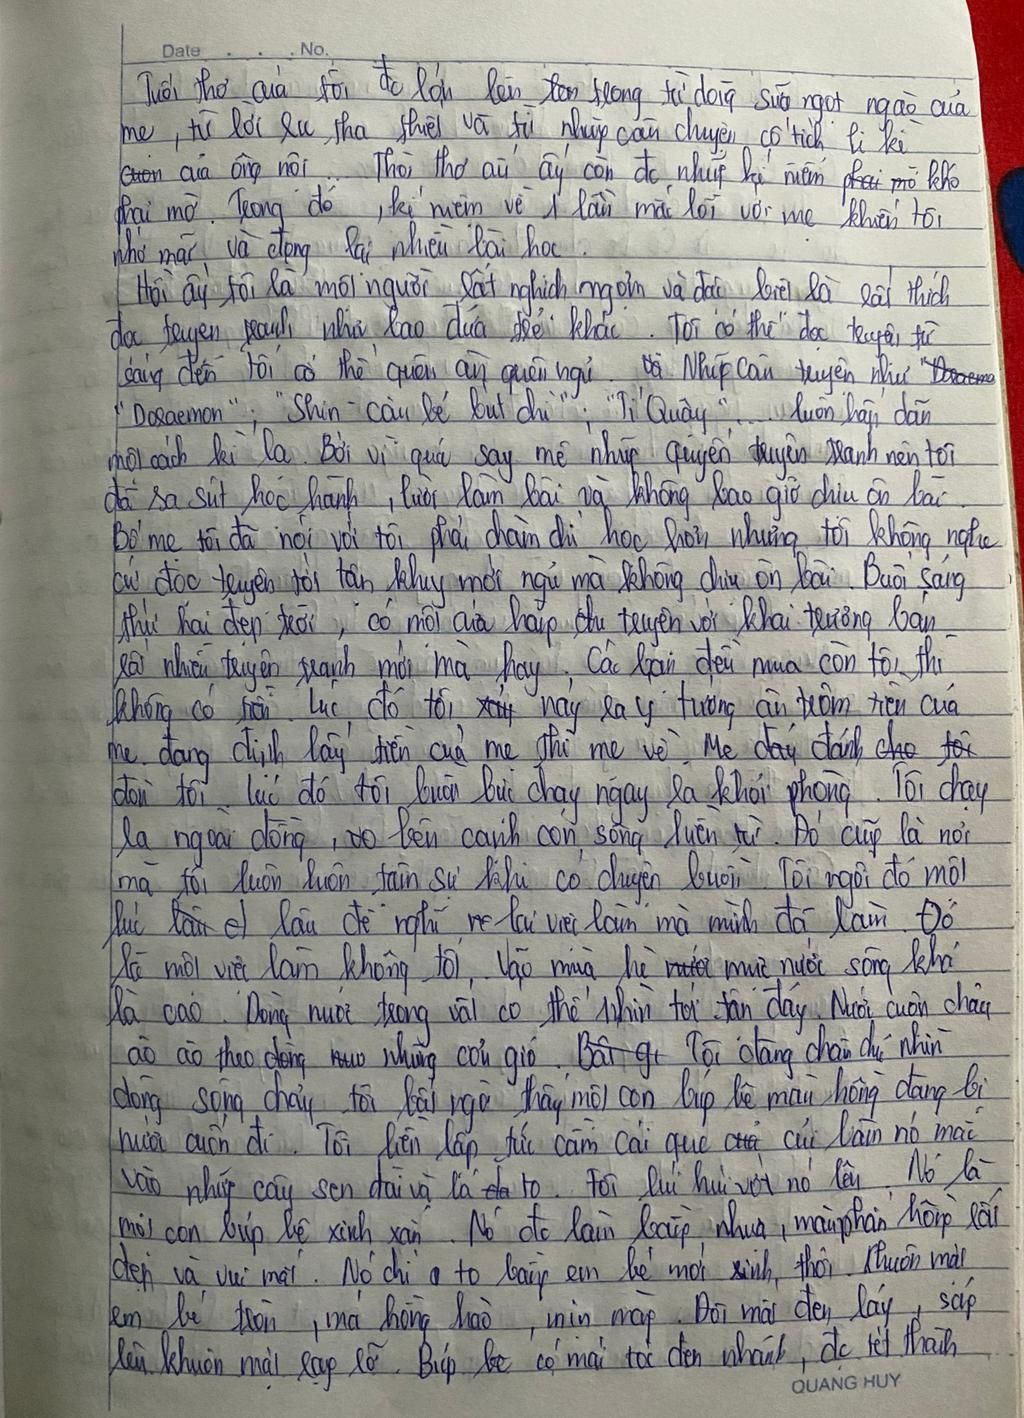 Date . . . No.
Tuổi thơ của tôi đc lớn lên trong từ dòng sữa ngọt ngào của
mẹ, từ lời ru tha thiết và từ những câu chuyện cổ tích li kì
của ông nội... Thời thơ ấu ấy còn đc những kỉ niệm khó
phai mờ. Trong đó, kỉ niệm về 1 lần mắc lỗi với mẹ khiến tôi
nhớ mãi và đọng lại nhiều bài học.
Hồi ấy tôi là một người rất nghịch ngợm và đặc biệt là rất thích
đọc truyện tranh như bao đứa trẻ khác. Tôi có thể đọc truyện từ
sáng đến tối có thể quên ăn quên ngủ. Những câu truyện như
"Doraemon"; "Shin - cậu bé bút chì"; "Tí Quậy",.... luôn hấp dẫn
một cách kì lạ. Bởi vì quá say mê những quyển truyện tranh nên tôi
đã sa sút học hành, lười làm bài và không bao giờ chịu ôn bài.
Bố mẹ tôi đã nói với tôi phải chăm chỉ học hơn nhưng tôi không nghe
cứ đọc truyện tới tận khuya mới ngủ mà không chịu ôn bài. Buổi sáng
thứ hai đẹp trời, có một cửa hàng truyện với khai trương bán
rất nhiều truyện tranh mới mà hay. Các bạn đều mua còn tôi thì
không có tiền. lúc đó tôi nảy ra ý tưởng ăn trộm tiền của
mẹ. đang định lấy tiền của mẹ thì mẹ về. Mẹ đánh
đòn tôi. lúc đó tôi buồn bực chạy ngay ra khỏi phòng. Tôi chạy
ra ngoài đồng, bên cạnh con sông luôn từ. Đó cũng là nơi
mà tôi luôn luôn tâm sự khi có chuyện buồn. Tôi ngồi đó một
lúc lâu để nghĩ về lại việc làm mà mình đã làm. Đó
là một việc làm không tốt. Vào mùa hè mực nước sông khá
là cao. Dòng nước trong vắt có thể nhìn tới tận đáy. Nước cuộn chảy
ào ào theo những cơn gió. Tôi đang chăm chú nhìn
dòng sông chảy tôi bất ngờ thấy một con búp bê màu hồng đang bị
nước cuốn đi. Tôi liền lập tức cầm cái que củi làm nó mắc
vào những cây sen dài và lá to. tôi lúi húi vớt nó lên. Nó là
một con búp bê xinh xắn. Nó đc làm bằng nhựa, màu phấn hồng rất
đẹp và vui mắt. Nó chỉ to bằng em bé mới sinh thôi. Khuôn mặt
em bé tròn, má hồng hào, mịn màp. Đôi mắt đen láy, sáp
lên khuôn mặt rạp rỡ. Búp bê có mái tóc đen nhánh, đc tết thành
QUANG HUY